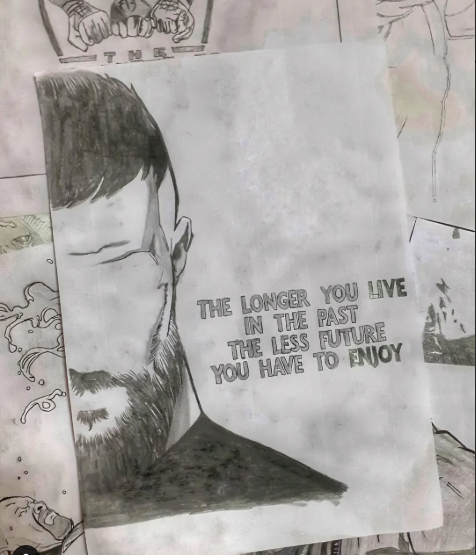 THE
THE LONGER YOU LIVE
IN THE PAST
THE LESS FUTURE
YOU HAVE TO ENJOY